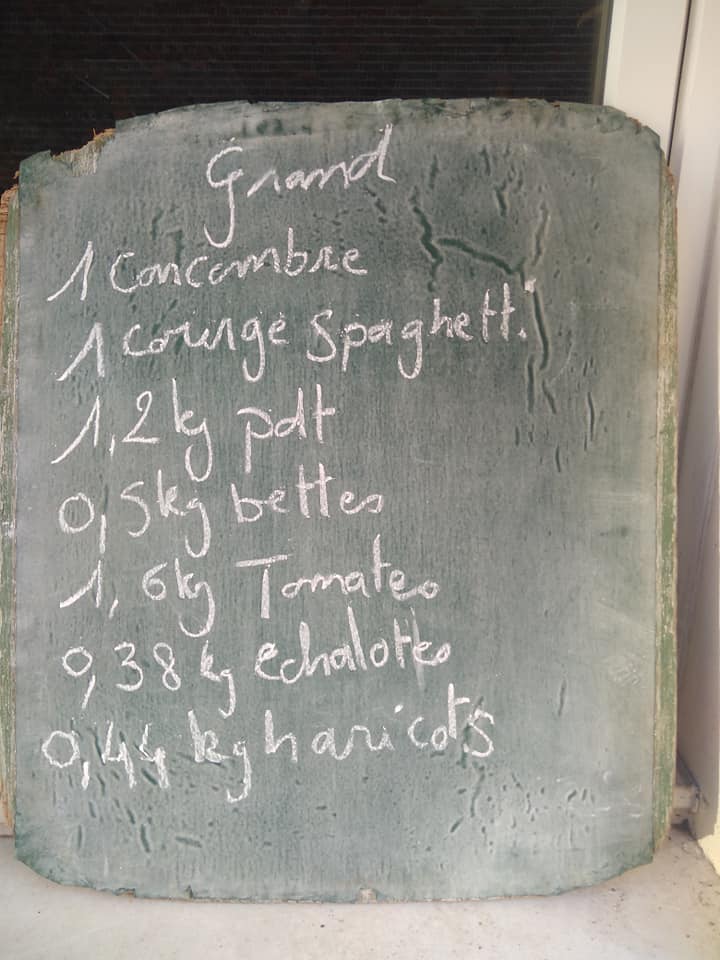 Grand
1 concombre
1 courge spaghetti
1,2 kg pdt
0,5kg bettes
1,6kg Tomates
0,38 kg echalottes
0,44 kg haricots